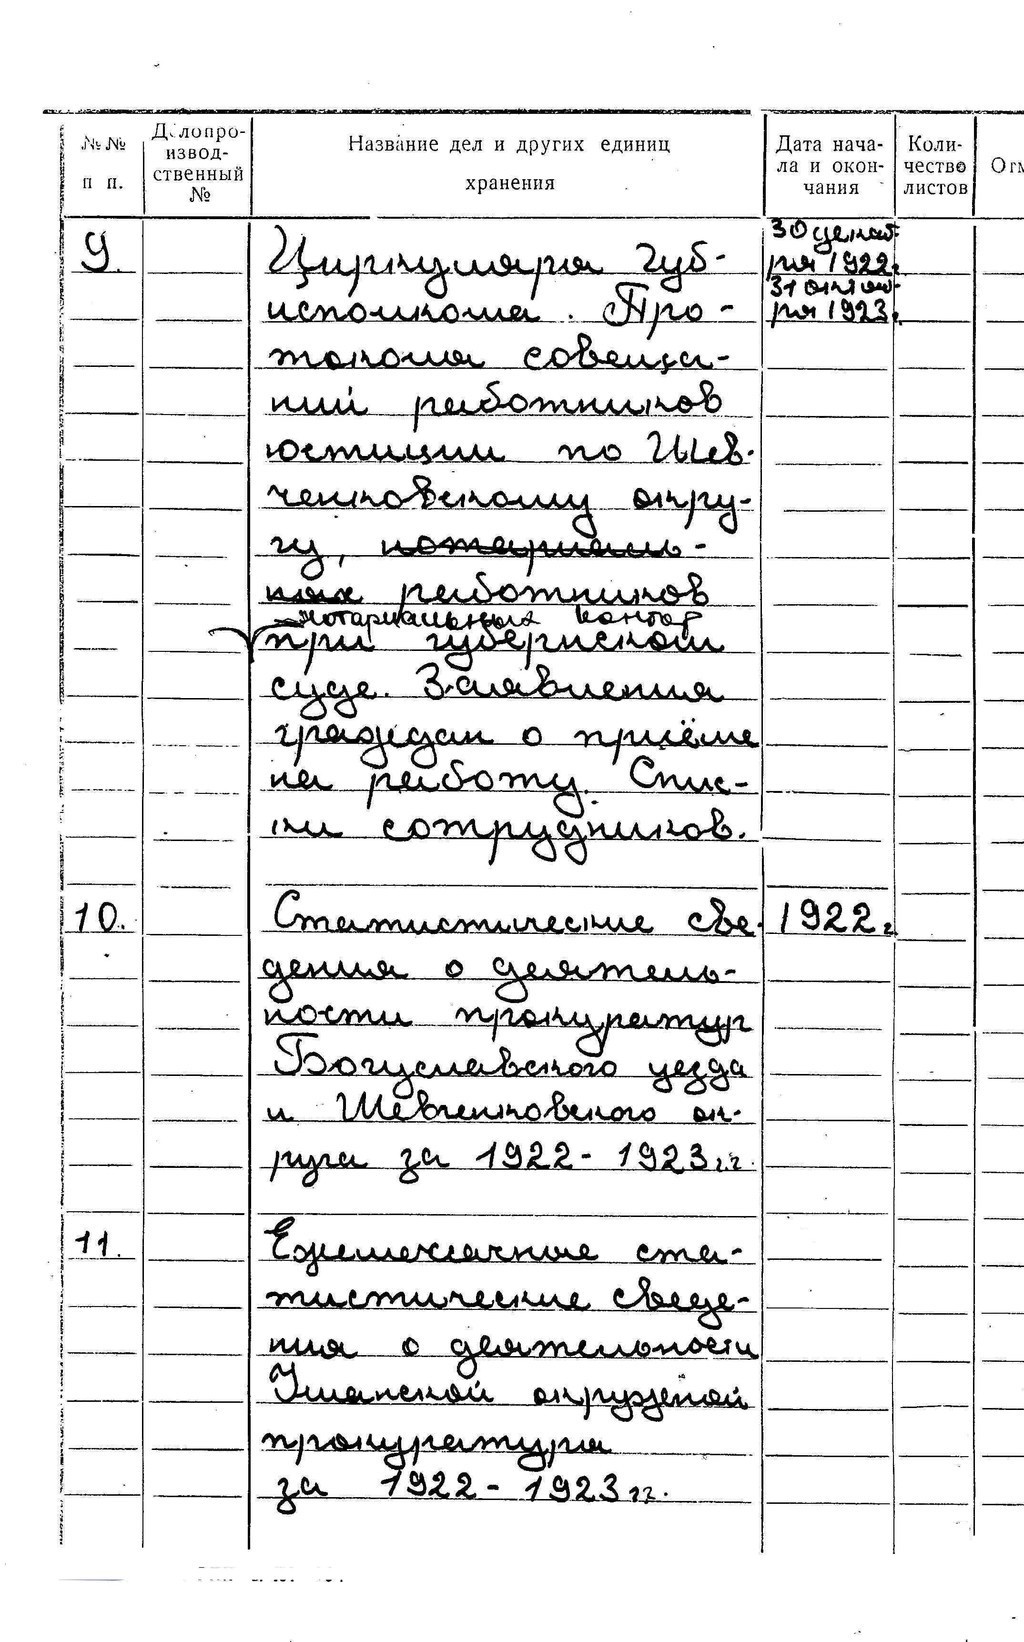 №№ п п.
Делопро-
извод-
ственный
№
Название дел и других единиц
хранения
Дата нача-
ла и окон-
чания
Коли-
чество
листов
Отм
9.
Циркуляры губ-
исполкома. Про-
токолы совеща-
ний работников
юстиции по Шев-
ченковскому окру-
гу, нотариаль-
ных работников
нотариальных контор
при губернском
суде. Заявления
граждан о приёме
на работу. Спис-
ки сотрудников.
30 декаб-
ря 1922г.
31 октяб-
ря 1923г.
10.
Статистические све-
дения о деятель-
ности прокуратур
Богуславского уезда
и Шевченковского ок-
руга за 1922-1923 гг.
1922 г.
11.
Ежемесячные ста-
тистические сведе-
ния о деятельности
Уманской окружной
прокуратуры
за 1922-1923 гг.